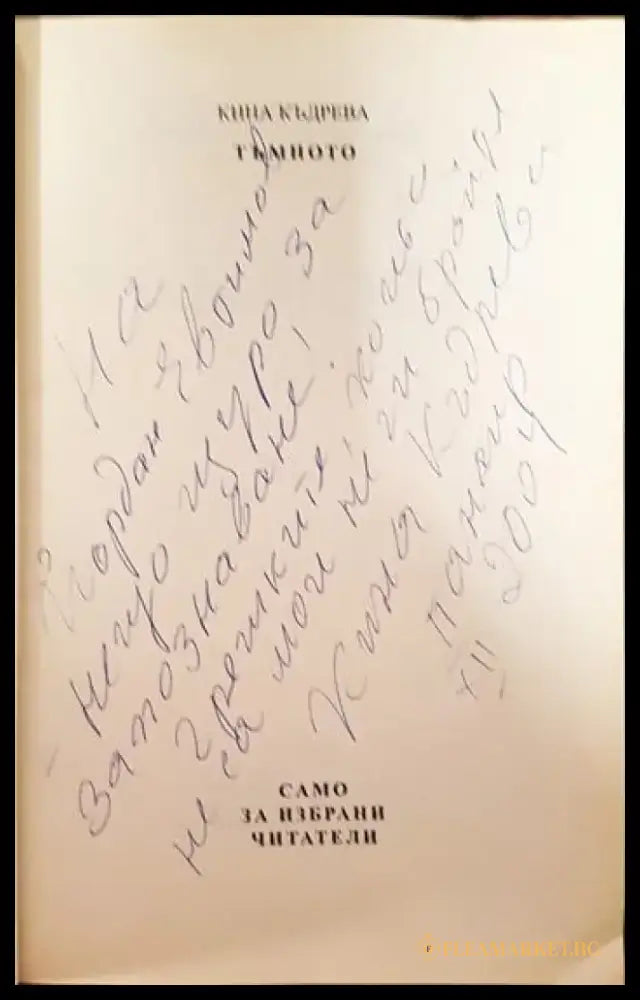 КИНА КЪДРЕВА
ТЪМНОТО
На
Йордан
нещо щуро за
запознаване!
грешките,
не са мои не ги брой
Кина Къдрева
панаир
XII 2004
САМО
ЗА ИЗБРАНИ
ЧИТАТЕЛИ